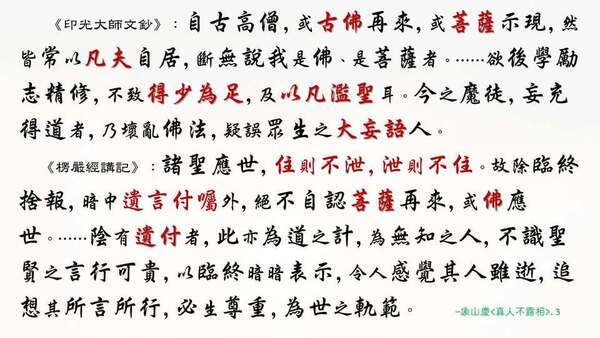 《印光大師文鈔》：自古高僧，或古佛再來，或菩薩示現，然
皆常以凡夫自居，斷無說我是佛、是菩薩者。……欲後學勵
志精修，不致得少為足，及以凡濫聖耳。今之魔徒，妄充
得道者，乃壞亂佛法，疑誤眾生之大妄語人。
《楞嚴經講記》：諸聖應世，住則不泄，泄則不住。故除臨終
捨報，暗中遺言付囑外，絕不自認菩薩再來，或佛應
世。……陰有遺付者，此亦為道之計，為無知之人，不識聖
賢之言行可貴，以臨終暗暗表示，令人感覺其人雖逝，追
想其所言所行，必生尊重，為世之軌範。
-象山慶<真人不露相>.3